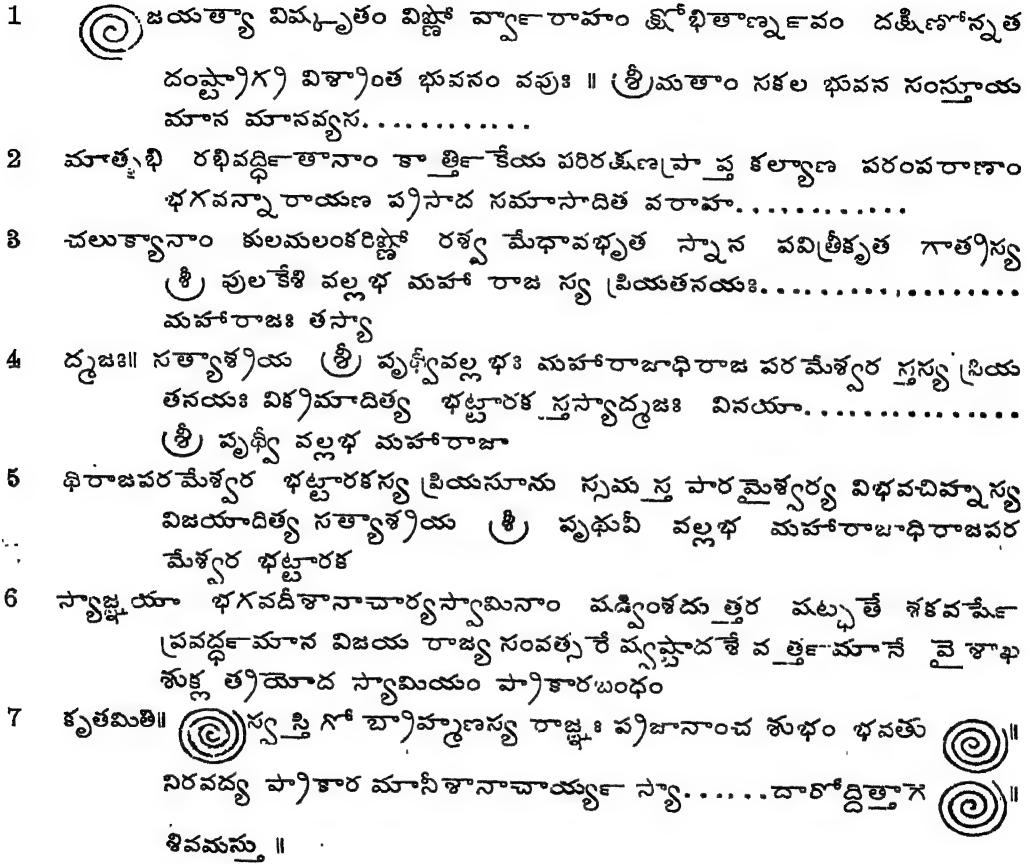 1 జయత్యా విష్కృతం విష్ణో ర్వ్వారాహం క్షోభితార్ణ్నవం దక్షిణోన్నత
దంష్ట్రాగ్ర విశ్రాంత భువనం వపుః ॥ శ్రీమతాం సకల భువన సంస్తూయ
మాన మానవ్యస............
2 మాతృభి రభివర్ద్ధితానాం కార్త్తికేయ పరిరక్షణప్రాప్త కల్యాణ పరంపరాణాం
భగవన్నారాయణ ప్రసాద సమాసాదిత వరాహ............
3 చలుక్యానాం కులమలంకరిష్ణో రశ్వ మేధావభృత స్నాన పవిత్రీకృత గాత్రస్య
శ్రీ పులకేశి వల్లభ మహా రాజ స్య ప్రియతనయః....................
మహారాజః తస్యా
4 ద్మజః॥ సత్యాశ్రయ శ్రీ పృథ్వీవల్లభః మహారాజాధిరాజ పరమేశ్వర స్తస్య ప్రియ
తనయః విక్రమాదిత్య భట్టారక స్తస్యాద్మజః వినయా...............
శ్రీ పృథ్వీ వల్లభ మహారాజా
5 థిరాజపరమేశ్వర భట్టారకస్య ప్రియసూను స్సమస్త పారమైశ్వర్య విభవచిహ్నస్య
విజయాదిత్య సత్యాశ్రయ శ్రీ పృథువీ వల్లభ మహారాజాధిరాజపర
మేశ్వర భట్టారక
6 స్యాజ్ఞయా భగవదీశానాచార్యస్వామినాం షడ్వింశదుత్తర షట్ఛతే శకవర్షే
ప్రవర్ద్ధమాన విజయ రాజ్య సంవత్సరే ష్వష్టాదశే వర్త్తమానే వైశాఖ
శుక్ల త్రయోద స్యామియం ప్రాకారబంధం
7 కృతమితి॥ స్వస్తి గో బ్రాహ్మణస్య రాజ్ఞః ప్రజానాంచ శుభం భవతు ॥
నిరవద్య ప్రాకార మానీశానాచార్య్య స్యా.......దారోద్దిత్తాగ ॥
శివమస్తు ॥